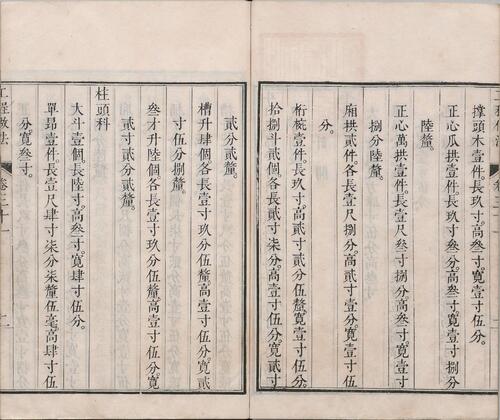 撑頭木壹件。長玖寸。高叁寸。寬壹寸伍分。
正心瓜拱壹件。長玖寸叁分。高叁寸。寬壹寸捌分
陸釐。
正心萬拱壹件。長壹尺叁寸捌分。高叁寸。寬壹寸
捌分陸釐。
廂拱貳件。各長壹尺捌分。高貳寸。寬壹寸伍
分。
桁椀壹件。長玖寸。高貳寸貳分伍釐。寬壹寸伍分。
拾捌斗貳個。各長貳寸柒分。高壹寸伍分。寬貳寸
貳分貳釐。
槽升肆個。各長壹寸玖分伍釐。高壹寸伍分。寬貳
寸伍分捌釐。
叁才升陸個。各長壹寸玖分伍釐。高壹寸伍分。寬
貳寸貳分貳釐。
柱頭科
大斗壹個。長陸寸。高叁寸。寬肆寸伍分。
單昂壹件。長壹尺肆寸柒分柒釐伍毫。高肆寸伍
分。寬叁寸。
工程做法
卷三十一
二